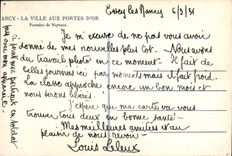 Essey les Nancy 6/3/31
NANCY - LA VILLE AUX PORTES D'OR
Fontaine de Neptune.
Je m'excuse de ne pas vous avoir
donné de mes nouvelles plus tôt. Nous avons
du travail photo en ce moment. Il fait de
belles journées ici par moments mais il fait froid.
La classe approche encore un bon mois et
nous serons libérés.
J'espère que ma carte va vous
trouver tous deux en bonne santé.
Mes meilleures amitiés et au
plaisir de nous revoir.
Louis Leleux